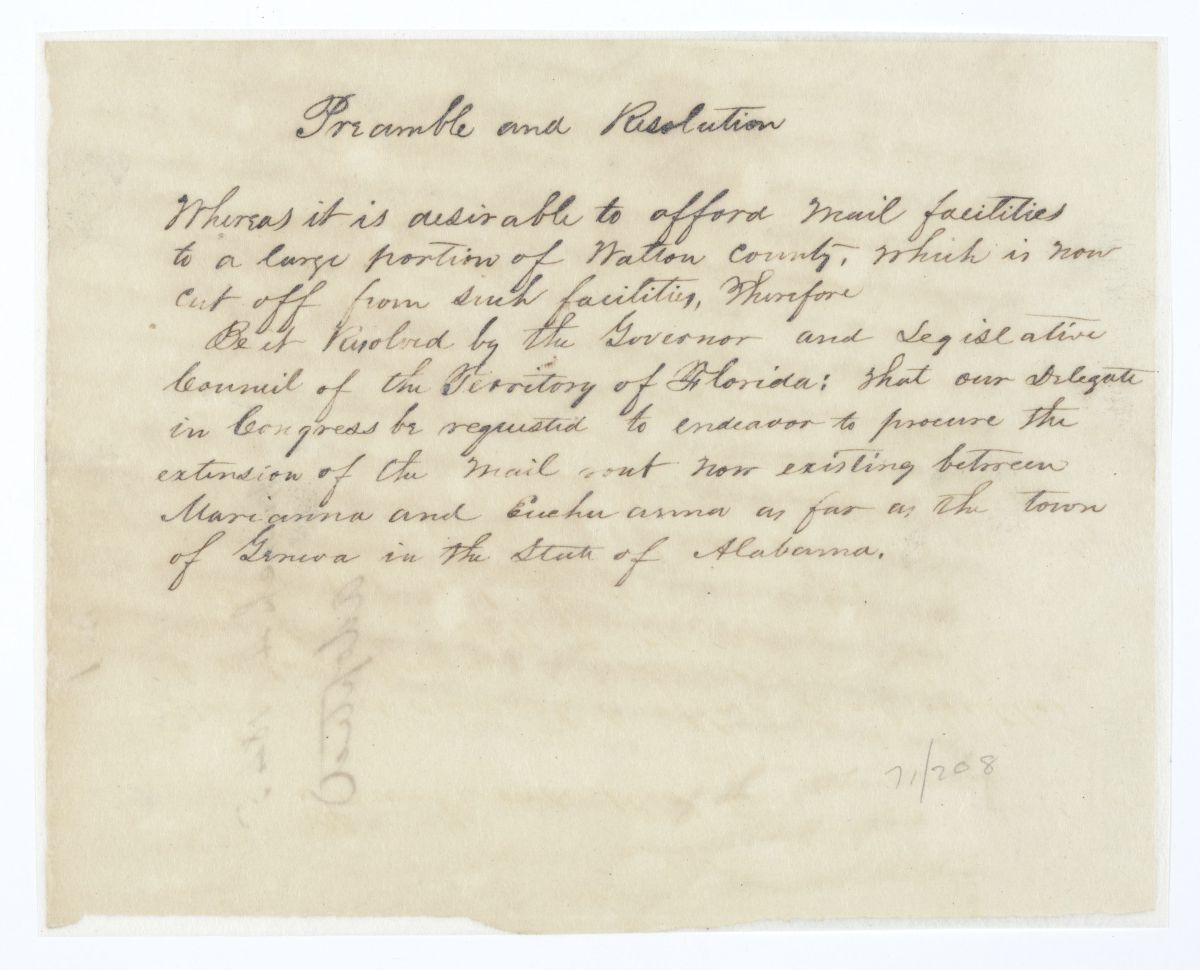 Preamble and Resolution
Whereas it is desirable to afford mail facilities
to a large portion of Walton County, which is now
cut off from such facilities, Therefore
Be it Resolved by the Governor and Legislative
Council of the Territory of Florida: that our Delegate
in Congress be requested to endeavor to procure the
extension of the mail rout now existing between
Marianna and Euchu anna as far as the town
of Geneva in the State of Alabama.
71/208